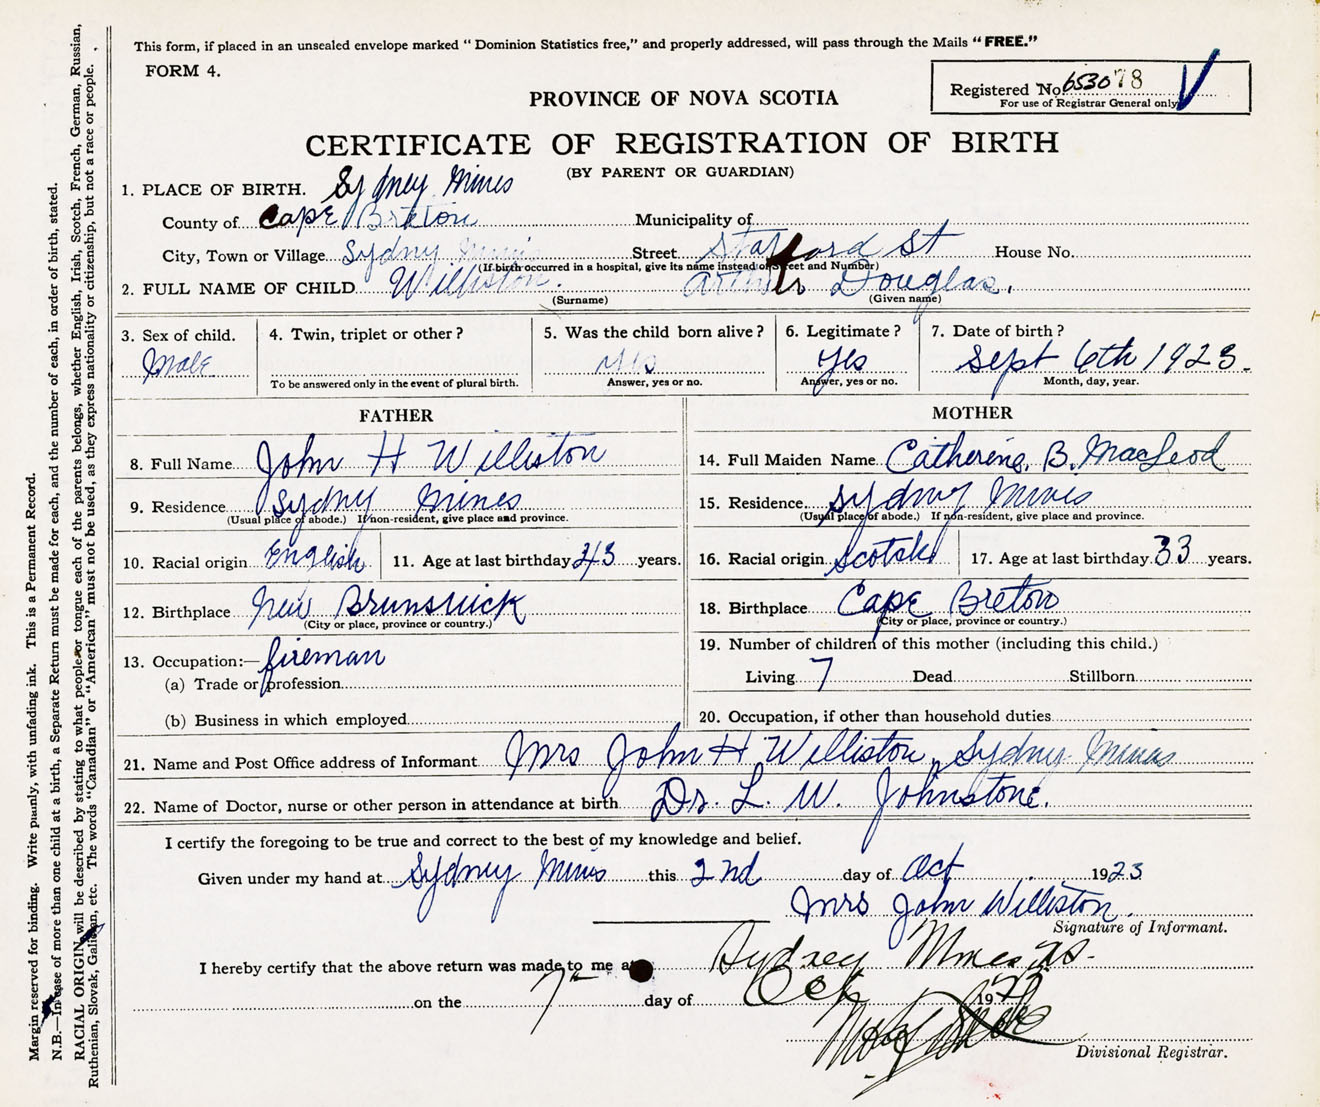 This form, if placed in an unsealed envelope marked “ Dominion Statistics free,” and properly addressed, will pass through the Mails “ FREE.”
FORM 4.
Registered No 653078
For use of Registrar General only
PROVINCE OF NOVA SCOTIA
CERTIFICATE OF REGISTRATION OF BIRTH
(BY PARENT OR GUARDIAN)
1. PLACE OF BIRTH. Sydney Mines
County of Cape Breton Municipality of
City, Town or Village Sydny Mines Street Stafford St House No.
(If birth occurred in a hospital, give its name instead of Street and Number)
2. FULL NAME OF CHILD Williston. Arthur Douglas.
(Surname) (Given name)
3. Sex of child. 4. Twin, triplet or other ? 5. Was the child born alive ? 6. Legitimate ? 7. Date of birth ?
Male yes Yes Sept 6th 1923.
To be answered only in the event of plural birth. Answer, yes or no. Answer, yes or no. Month, day, year.
FATHER MOTHER
8. Full Name John H Williston 14. Full Maiden Name Catherine. B. MacLeod
9. Residence Sydny Mines 15. Residence Sydny Mines
(Usual place of abode.) If non-resident, give place and province. (Usual place of abode.) If non-resident, give place and province.
10. Racial origin English 11. Age at last birthday 43 years. 16. Racial origin Scotsh 17. Age at last birthday 33 years.
12. Birthplace New Brunswick 18. Birthplace Cape Breton
(City or place, province or country.) (City or place, province or country.)
13. Occupation:— fireman 19. Number of children of this mother (including this child.)
(a) Trade or profession Living 7 Dead Stillborn
(b) Business in which employed 20. Occupation, if other than household duties
21. Name and Post Office address of Informant Mrs John H Williston, Sydny Mines
22. Name of Doctor, nurse or other person in attendance at birth Dr. L. W. Johnstone.
I certify the foregoing to be true and correct to the best of my knowledge and belief.
Given under my hand at Sydney Mines this 2nd day of Oct 1923
Mrs John Williston.
Signature of Informant.
I hereby certify that the above return was made to me at Sydney Mines NS-
on the 7th day of Oct 19
Divisional Registrar.
Margin reserved for binding. Write plainly, with unfading ink. This is a Permanent Record.
N.B.—In case of more than one child at a birth, a Separate Return must be made for each, and the number of each, in order of birth, stated.
RACIAL ORIGIN will be described by stating to what people or tongue each of the parents belongs, whether English, Irish, Scotch, French, German, Russian,
Ruthenian, Slovak, Galician, etc. The words “Canadian” or “American” must not be used, as they express nationality or citizenship, but not a race or people.